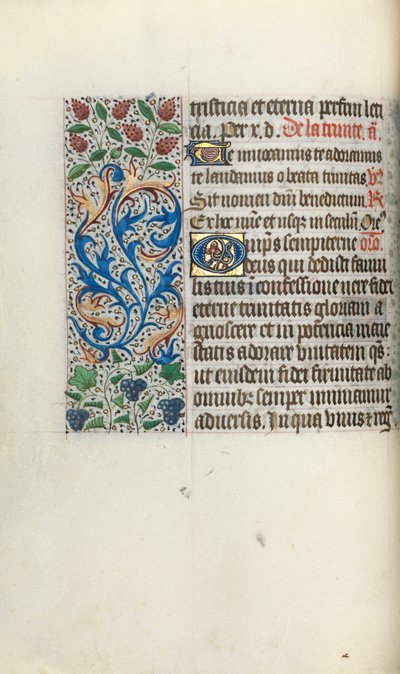 tristicia et eterna perfrui leti
cia. Per x. d. De la trinite. ā.
Te inuocamus te adoramus
te laudamus o beata trinitas. V̄
Sit nomen dn̄i benedictum. R
Ex hoc nūc et usq; in seculū. Orō.
Omīps sempiterne orō.
deus qui dedisti famu
lis tuis ī confessione uere fidei
eterne trinitatis gloriam a
gnoscere et in potencia maie
statis adorare vnitatem q̄s
ut eiusdem fidei firmitate ab
omnibz semper muniamur
aduersis. In qua viuis et reḡ